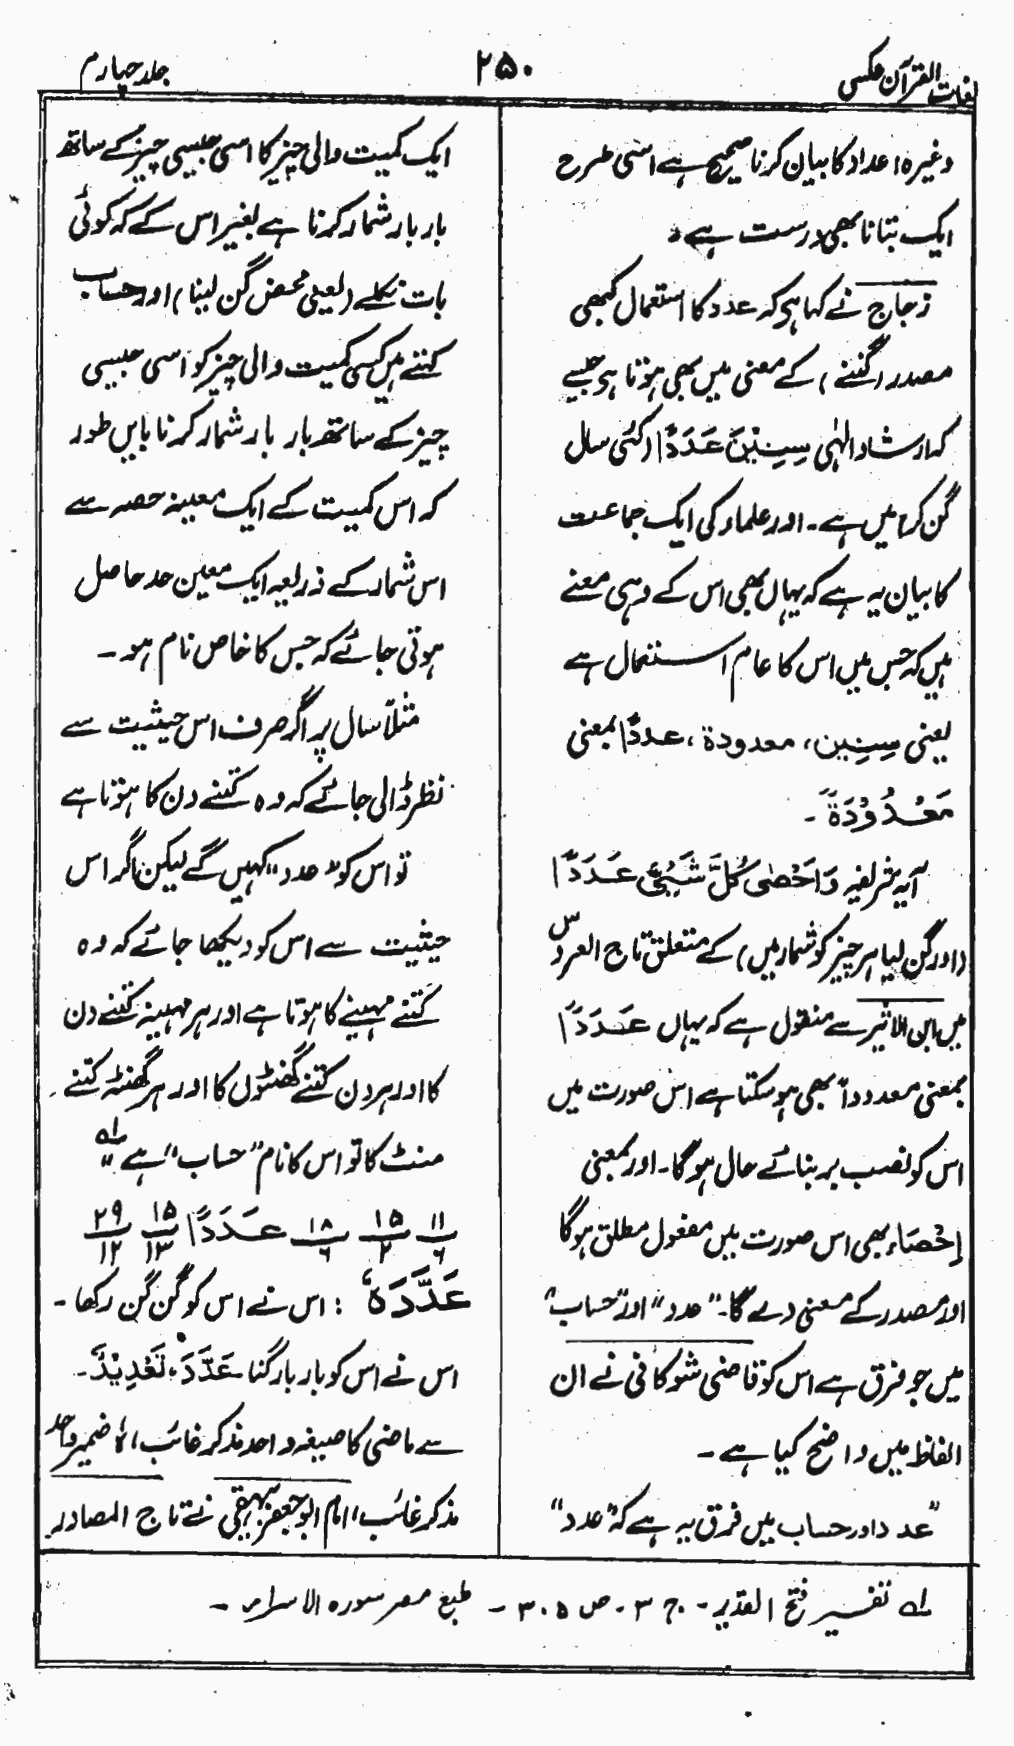 لغات القرآن عکسی
۲۵۰
جلد چہارم
وغیرہ اعداد کا بیان کرنا صحیح ہے اسی طرح
ایک بتانا بھی درست ہے۔
زجاج نے کہا ہی کہ عدد کا استعمال کبھی
مصدر (گننے) کے معنی میں بھی ہوتا ہی جیسے
کہ ارشاد الٰہی سِنِیْنَ عَدَدًا (کئی سال
گن کر) میں ہے۔ اور علماء کی ایک جماعت
کا بیان یہ ہے کہ یہاں بھی اس کے وہی معنے
ہیں کہ جس میں اس کا عام استعمال ہے
یعنی سِنِین، معدودة، عدداً بمعنی
مَعْدُوْدَةً۔
آیہ شریفہ وَاَحْصٰی کُلَّ شَیْئٍ عَدَدًا
(اور گن لیا ہر چیز کو شمار میں) کے متعلق تاج العروس
میں ابن الاثیر سے منقول ہے کہ یہاں عَدَدًا
بمعنی معدوداً بھی ہو سکتا ہے اس صورت میں
اس کو نصب بر بنائے حال ہوگا۔ اور بمعنی
اِحْصَاء بھی اس صورت میں مفعول مطلق ہوگا
اور مصدر کے معنی دے گا۔ "عدد" اور "حساب"
میں جو فرق ہے اس کو قاضی شوکانی نے ان
الفاظ میں واضح کیا ہے۔
"عدد اور حساب میں فرق یہ ہے کہ "عدد"
ایک کمیت والی چیز کا اسی جیسی چیز کے ساتھ
بار بار شمار کرنا ہے بغیر اس کے کہ کوئی
بات نکلے (یعنی محض گن لینا) اور حساب
کہتے ہیں کسی کمیت والی چیز کو اسی جیسی
چیز کے ساتھ بار بار شمار کرنا بایں طور
کہ اس کمیت کے ایک معینہ حصہ سے
اس شمار کے ذریعہ ایک معین حد حاصل
ہوتی جائے کہ جس کا خاص نام ہو۔
مثلاً سال پر اگر صرف اس حیثیت سے
نظر ڈالی جائے کہ وہ کتنے دن کا ہوتا ہے
تو اس کو "عدد" کہیں گے لیکن اگر اس
حیثیت سے اس کو دیکھا جائے کہ وہ
کتنے مہینے کا ہوتا ہے اور ہر مہینہ کتنے دن
کا اور ہر دن کتنے گھنٹوں کا اور ہر گھنٹہ کتنے
منٹ کا تو اس کا نام "حساب" ہے" لہ
۱۱/۶ ۱۵/۲ ۱۸/۶ عَدَدًا ۱۵/۱۳ ۲۹/۱۲
عَدَّدَہٗ : اس نے اس کو گن گن رکھا۔
اس نے اس کو بار بار گنا۔ عَدَّدَ، تَعْدِیْدٌ۔
سے ماضی کا صیغہ واحد مذکر غائب، ہٗ ضمیر واحد
مذکر غائب، امام ابوجعفر بیہقی نے تاج المصادر
لہ تفسیر فتح القدیر۔ ج ۳۔ ص ۳۰۵۔ طبع مصر سورہ الاسراء۔